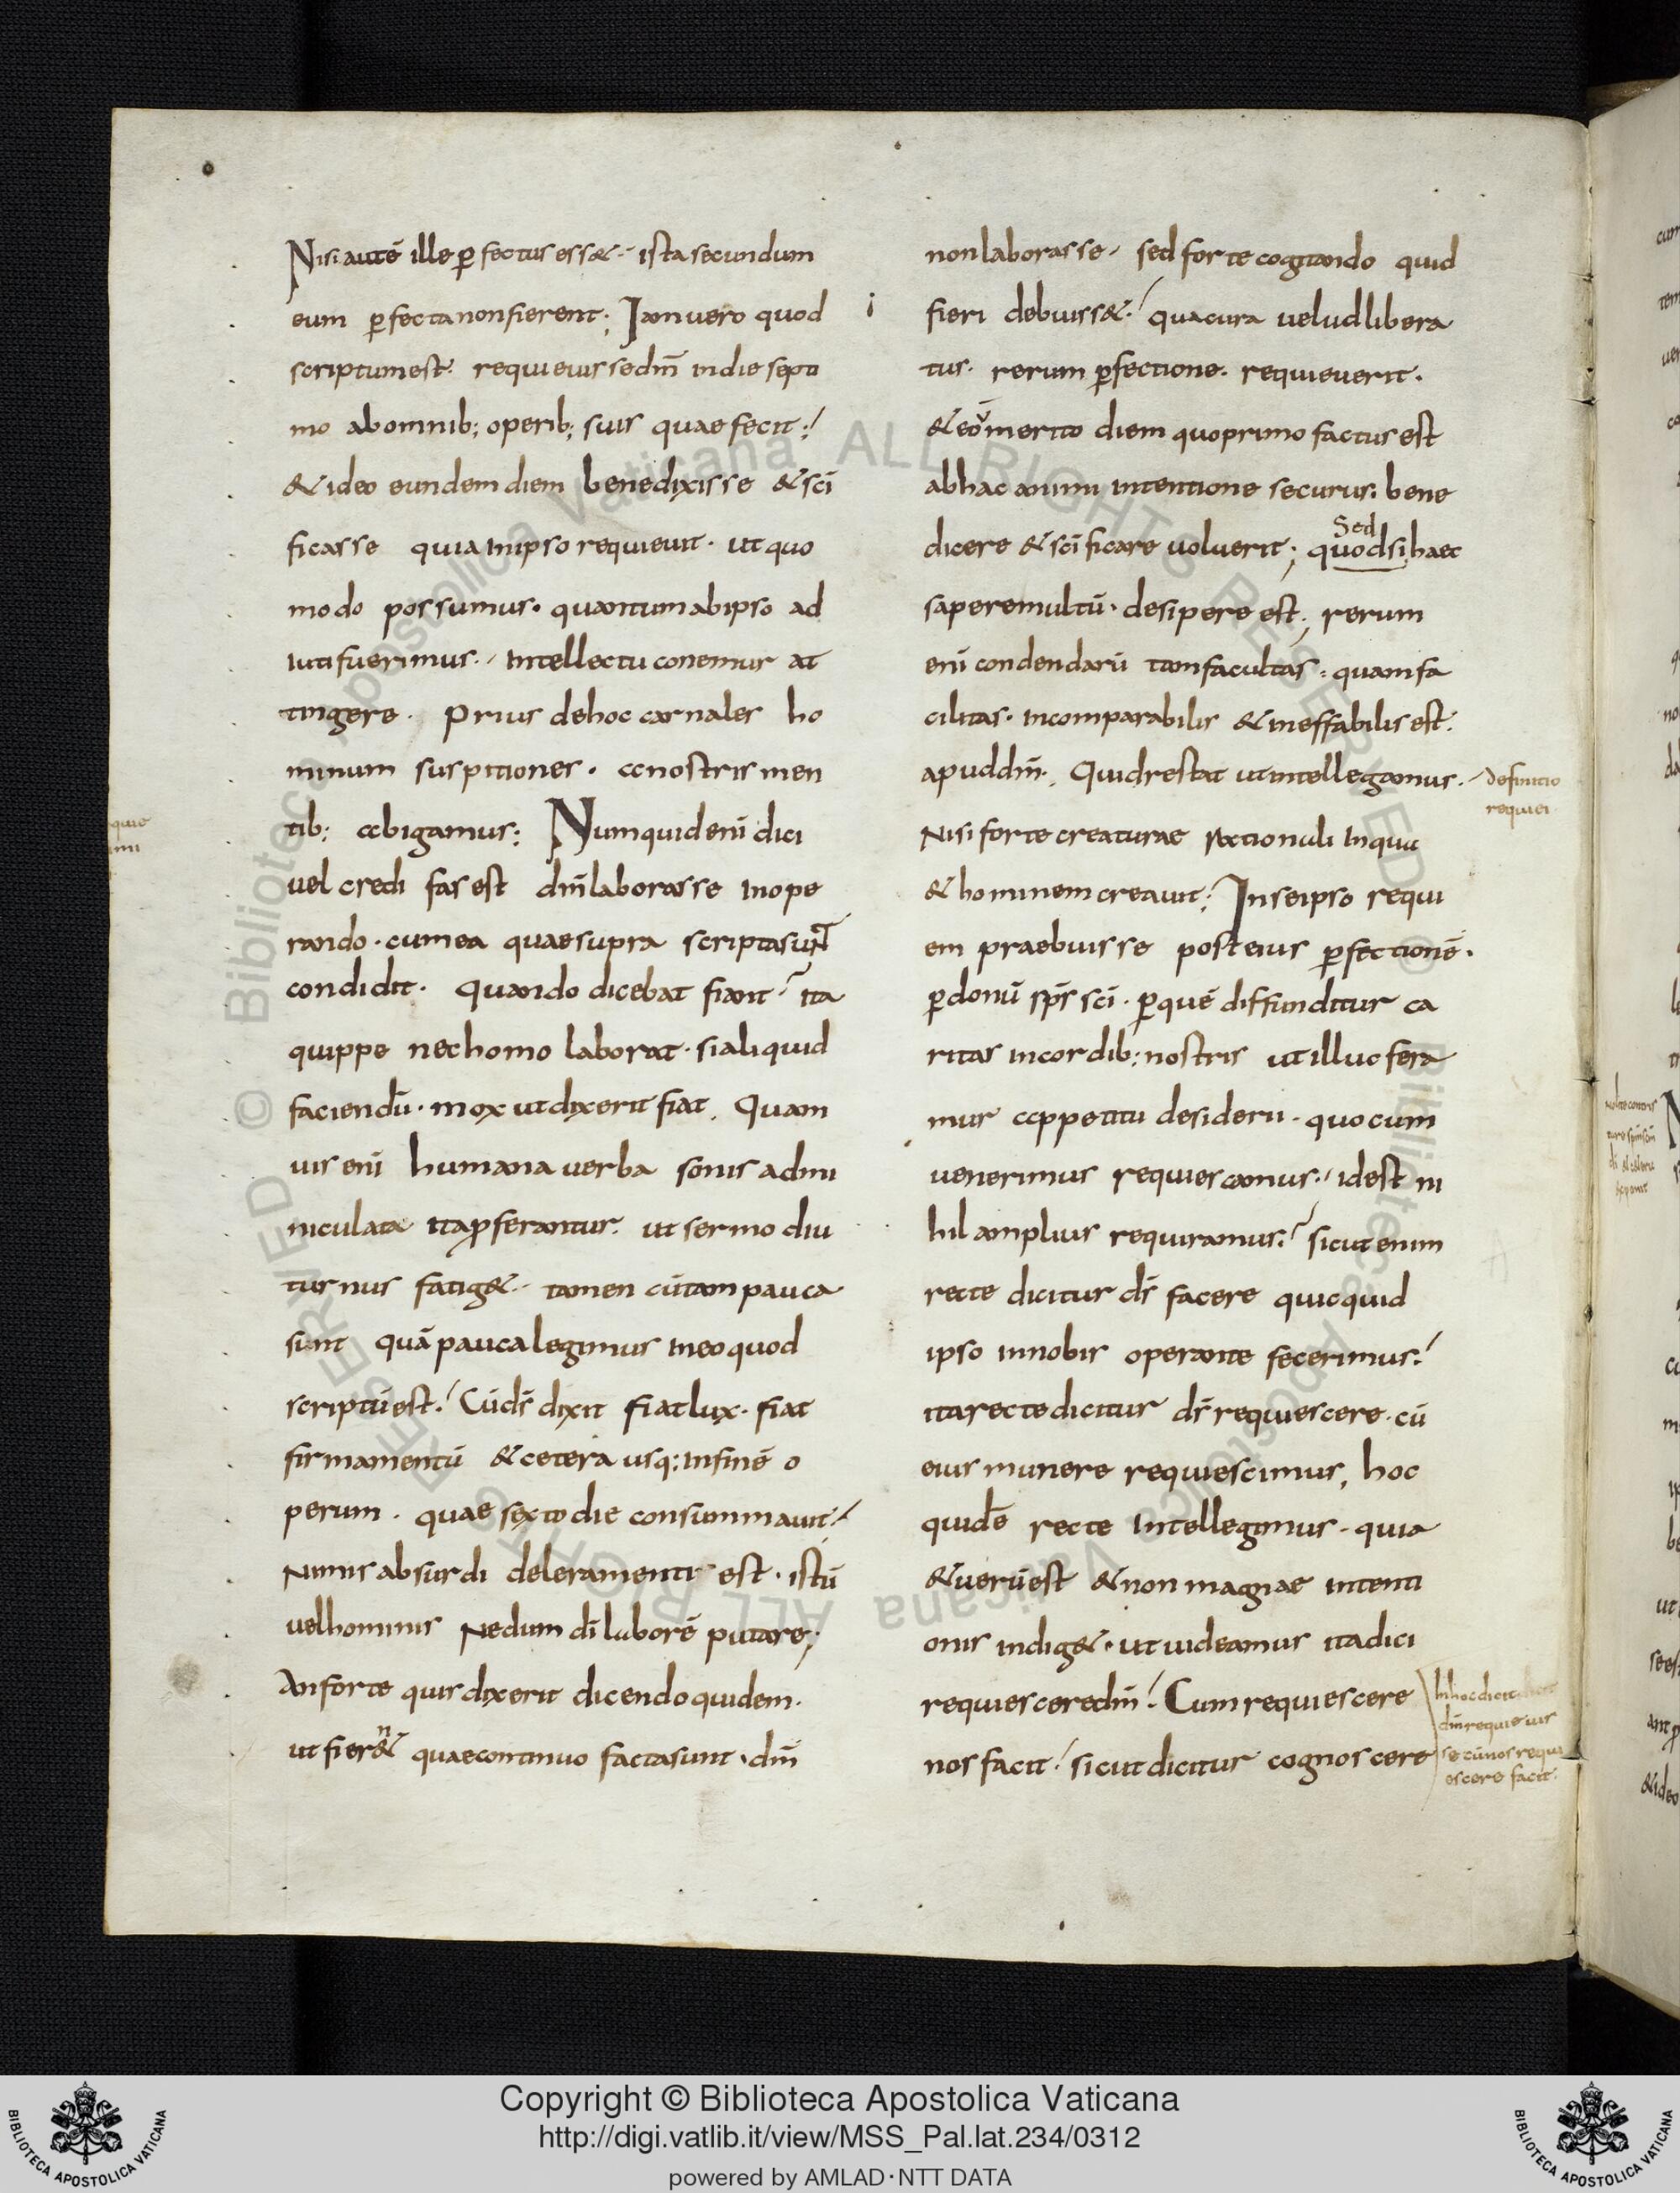 Nisi autē ille ꝑfectus ess&· ista secundum
eum ꝑfecta non fierent; Iam uero quod
scriptum est· requieuisse dm̄ in die septi
mo ab omnib; operib; suis quae fecit;
& ideo eundem diem benedixisse & sc̄i
ficasse quia in ipso requieuit· ut quo
modo possumus· quantum ab ipso ad
iuti fuerimus· intellectu conemur at
tingere· Prius de hoc carnales ho
minum suspitiones· a nostris men
tib; abigamus; Numquid enī dici
uel credi fas est dm̄ laborasse in ope
rando· cum ea quae supra scripta sunt
condidit· Quando dicebat fiant· ita
quippe nec homo laborat· si aliquid
faciendū· mox ut dixerit fiat. Quam
uis enī humana uerba sonis admi
niculata ita ꝓferantur· ut sermo diu
turnus fatig&· tamen cū tam pauca
sunt quā pauca legimus in eo quod
scriptū est· Cū ds̄ dixit fiat lux· fiat
firmamentū & cetera usq; in finē o
perum· quae sexto die consummauit·
Nimis absurdi deleramenti est· istū
uel hominis Nedum dī laborē putare;
An forte quis dixerit dicendo quidem·
ut fierent quae continuo facta sunt· dm̄
non laborasse· sed forte cogitando quid
fieri debuiss&· qua cura uelud libera
tus· rerum ꝑfectione· requieuerit·
& eo merito diem quo primo factus est
ab hac animi intentione securus· bene
dicere & sc̄ificare uoluerit; quod si haec
Sed
sapere multū· desipere est; rerum
enī condendarū tam facultas· quam fa
cilitas· incomparabilis & ineffabilis est·
apud dm̄. Quid restat ut intellegamus·
Nisi forte creaturae rationali In qua
& hominem creauit; In se ipso requi
em praebuisse post eius ꝑfectionē·
ꝑ donū sps̄ sc̄i· ꝑ quē diffunditur ca
ritas in cordib; nostris ut illuc fera
mur appetitu desiderii· quo cum
uenerimus requiescamus· id est ni
hil amplius requiramus· sicut enim
recte dicitur ds̄ facere quicquid
ipso in nobis operante fecerimus·
ita recte dicitur ds̄ requiescere· cū
eius munere requiescimus, hoc
quidē recte Intellegimus· quia
& uerū est & non magnae intenti
onis indig&· ut uideamus ita dici
requiescere dm̄· Cum requiescere
nos facit· sicut dicitur cognoscere
definitio
requiei
In hoc dicit
dm̄ requieuis
se cū nos requi
escere facit·
Copyright © Biblioteca Apostolica Vaticana
http://digi.vatlib.it/view/MSS_Pal.lat.234/0312
powered by AMLAD·NTT DATA
BIBLIOTECA APOSTOLICA VATICANA
BIBLIOTECA APOSTOLICA VATICANA